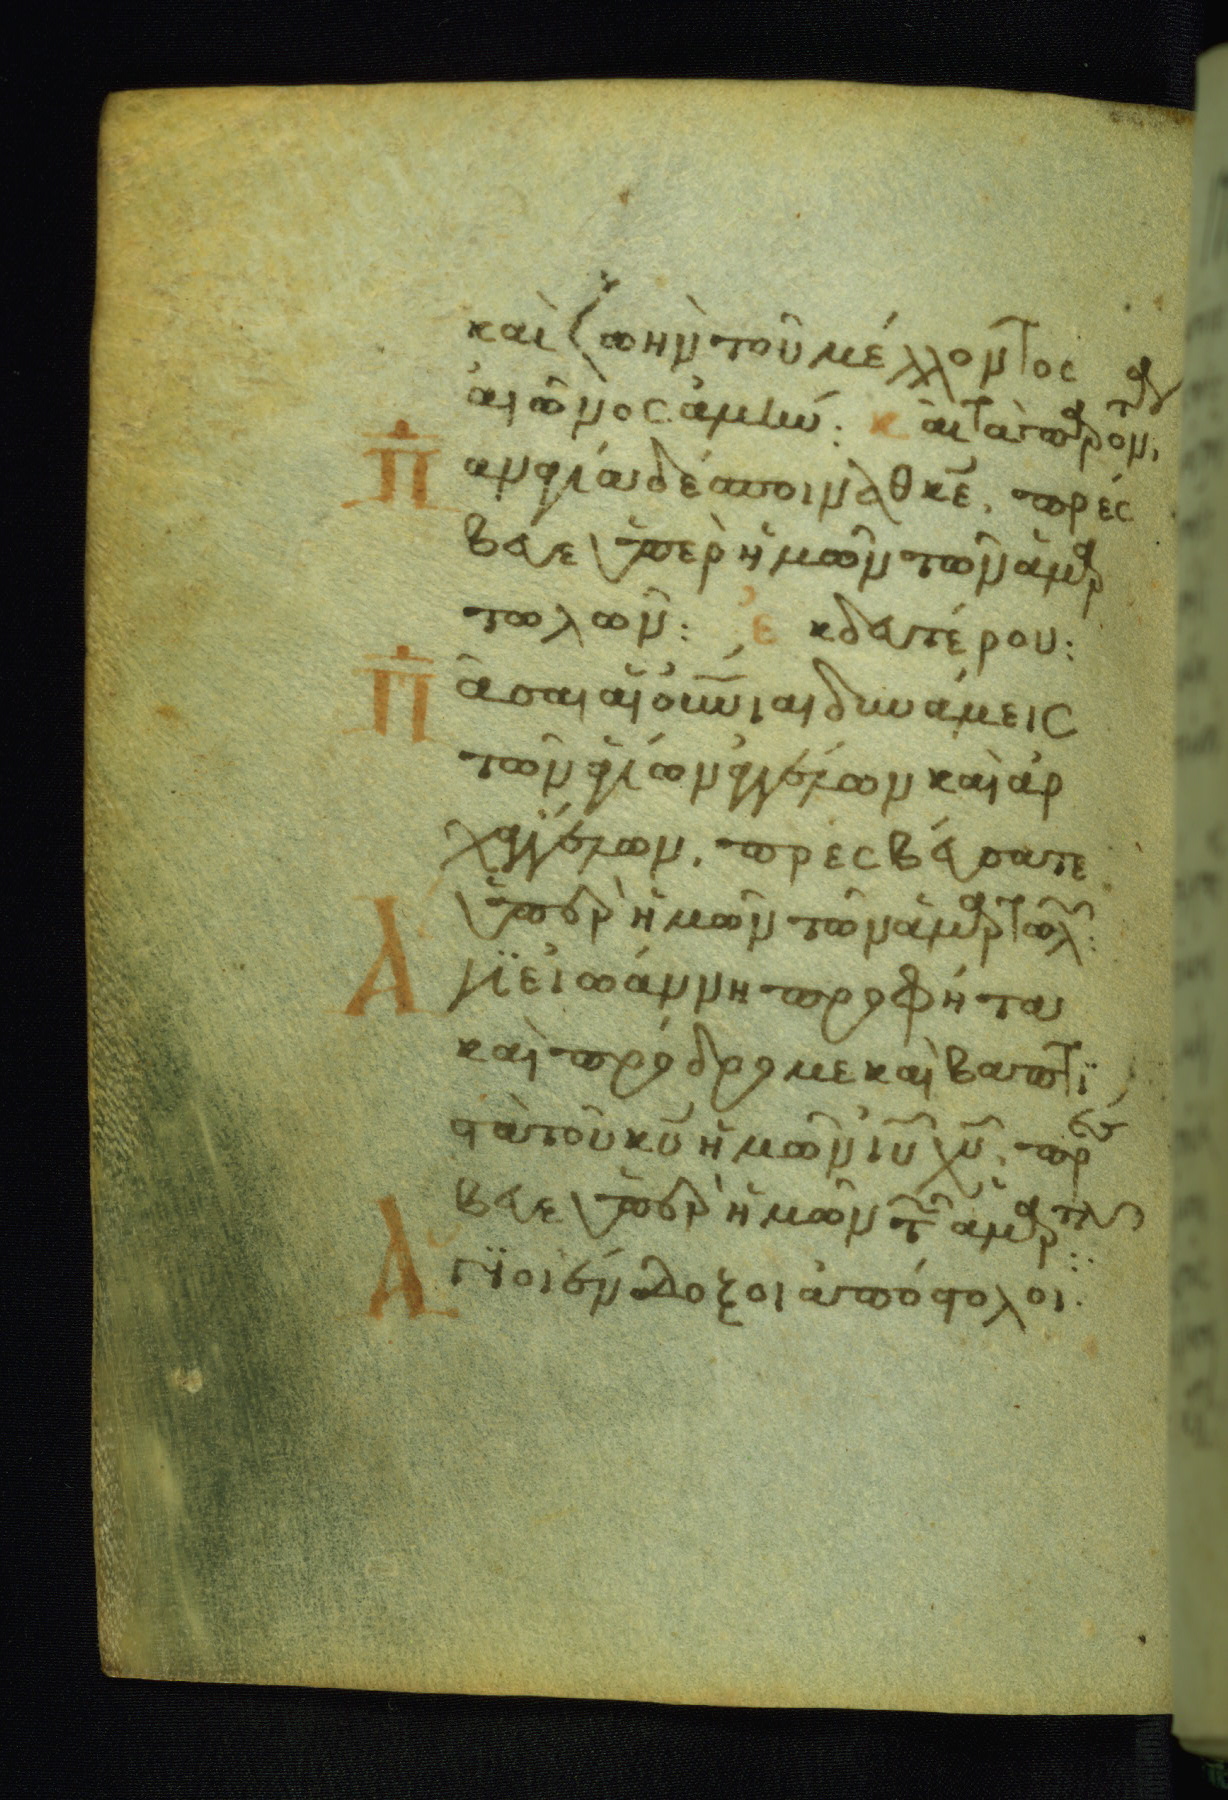 καὶ ζωὴν τοῦ μέλλοντος
αἰῶνος ἀμήν: κ αὶ τὰ τροπάρ
Παναγία δέσποινα θκε, πρέσ
βευε ὑπὲρ ἡμῶν τῶν ἁμαρ
τωλῶν: ἐκ δευτέρου:
Πᾶσαι αἱ οὐνιαι δυνάμεις
τῶν ἁγίων ἀγγέλων καὶ ἀρ
χαγγέλων, πρεσβεύσατε
ὑπὲρ ἡμῶν τῶν ἁμαρτωλ:
Ἅγιε ἰωάννη προφῆτα
καὶ πρόδρομε καὶ βαπτι
στὰ τοῦ κυ ἡμῶν ιυ χυ, πρέσ
βευε ὑπὲρ ἡμῶν τ ἁμαρτωλ:
Ἅγιοι ἔνδοξοι ἀπόστολοι.